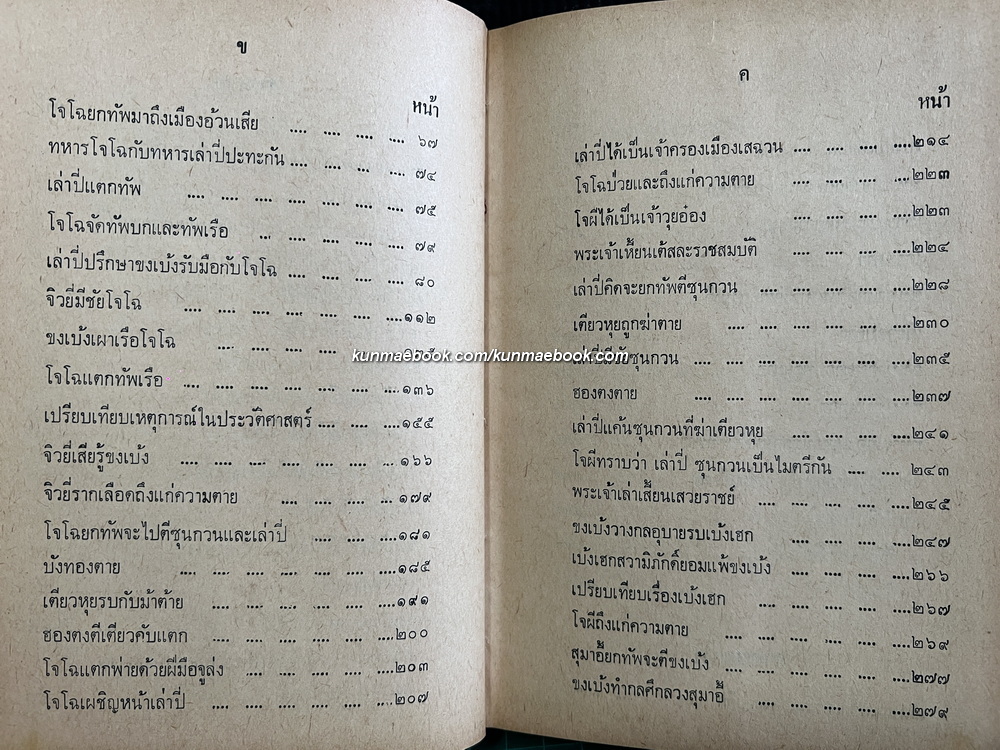 ข
หน้า
โจโฉยกทัพมาถึงเมืองอ้วนเสีย .... .... .... .... ๖๗
ทหารโจโฉกับทหารเล่าปี่ปะทะกัน .... .... .... .... ๗๔
เล่าปี่แตกทัพ .... .... .... .... .... .... .... ๗๕
โจโฉจัดทัพบกและทัพเรือ .... .... .... .... .... ๗๙
เล่าปี่ปรึกษาขงเบ้งรับมือกับโจโฉ .... .... .... .... ๘๐
จิวยี่มีชัยโจโฉ .... .... .... .... .... .... ....๑๑๒
ขงเบ้งเผาเรือโจโฉ .... .... .... .... ....
โจโฉแตกทัพเรือ .... .... .... .... .... .... ....๑๓๖
เปรียบเทียบเหตุการณ์ในประวัติศาสตร์ .... .... ....๑๕๕
จิวยี่เสียรู้ขงเบ้ง .... .... .... .... .... .... ....๑๖๖
จิวยี่รากเลือดถึงแก่ความตาย .... .... .... ... ๑๗๙
โจโฉยกทัพจะไปตีซุนกวนและเล่าปี่ .... .... ....๑๘๑
บังทองตาย .... .... .... .... .... .... ....๑๘๕
เตียวหุยรบกับม้าต้าย .... .... .... .... .... ....๑๙๑
ฮองตงตีเตียวคับแตก .... .... .... .... .... ....๒๐๐
โจโฉแตกพ่ายด้วยฝีมือจูล่ง .... .... .... .... ....๒๐๓
โจโฉเผชิญหน้าเล่าปี่ .... .... .... .... .... ....๒๐๗
ค
หน้า
เล่าปี่ได้เป็นเจ้าครองเมืองเสฉวน .... .... .... ....๒๑๔
โจโฉป่วยและถึงแก่ความตาย .... .... .... ....๒๒๓
โจผีได้เป็นเจ้าวุยอ๋อง .... .... .... ....๒๒๓
พระเจ้าเหี้ยนเต้สละราชสมบัติ .... .... .... ....๒๒๔
เล่าปี่คิดจะยกทัพตีซุนกวน .... .... .... .... ....๒๒๘
เตียวหุยถูกฆ่าตาย .... .... .... .... .... ....๒๓๐
ซุนกวน .... .... .... .... .... .... ....๒๓๕
kunmaebook.com/kunmaebook.com
ฮองตงตาย .... .... .... .... .... .... ....๒๓๗
เล่าปี่แค้นซุนกวนที่ฆ่าเตียวหุย .... .... .... ....๒๔๑
โจผีทราบว่า เล่าปี่ ซุนกวนเป็นไมตรีกัน .... .... ๒๔๓
พระเจ้าเล่าเสี้ยนเสวยราชย์ .... .... .... .... ....๒๔๕
ขงเบ้งวางกลอุบายรบเบ้งเฮก .... .... .... ....๒๔๗
เบ้งเฮกสวามิภักดิ์ยอมแพ้ขงเบ้ง .... .... .... ....๒๖๖
เปรียบเทียบเรื่องเบ้งเฮก .... .... .... .... ....๒๖๗
โจผีถึงแก่ความตาย .... .... .... .... .... ....๒๖๙
สุมาอี้ยกทัพจะตีขงเบ้ง .... .... .... .... .... ....๒๗๗
ขงเบ้งทำกลศึกลวงสุมาอี้ .... .... .... .... ....๒๗๙